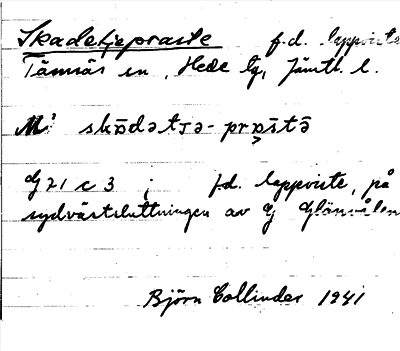 Skadetjepraste f.d. lappviste
Tännäs sn, Hede tg, Jämtl. l.
M: skådətjə-pråstə
G 21 c 3 ; f.d. lappviste, på
sydvästsluttningen av G Glänvålen
Björn Collinder 1941